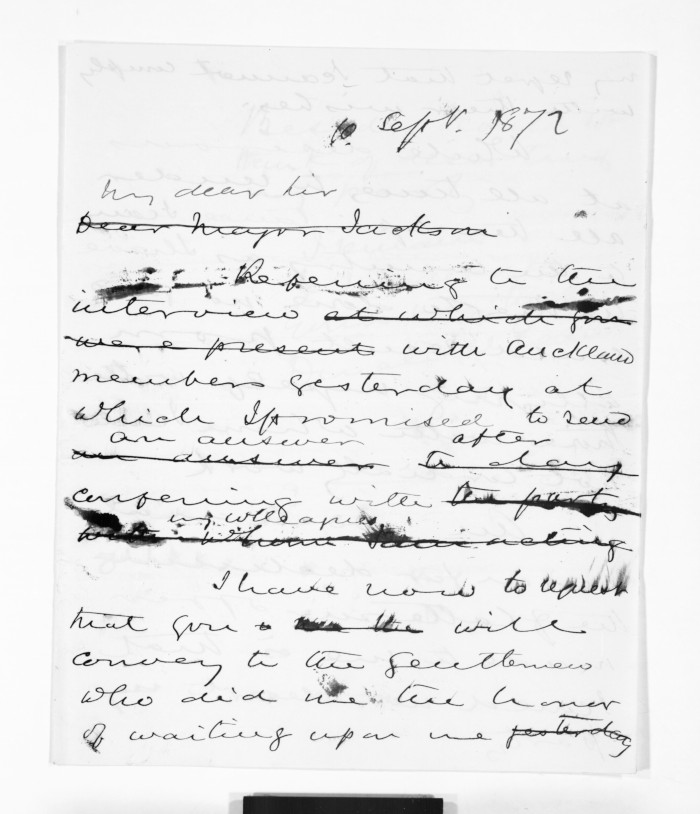 10 Sept. 1872
My dear Sir
Dear Major Jackson
Referring to the
interview at which you
were present with Auckland
members yesterday at
which I promised to send
an answer after
an answer to day
conferring with the party
my colleagues
with whom I am acting
I have now to request
that you will
convey to the gentlemen
who did me the honor
of waiting upon me yesterday